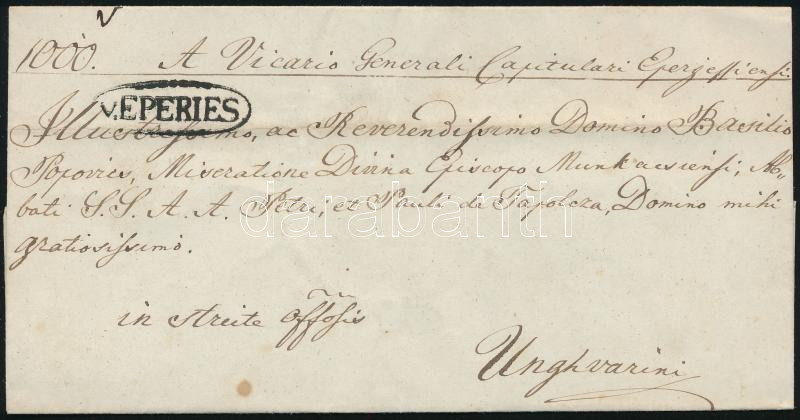 1000. A Vicario Generali Capitulari Eperjessiensi.
v.EPERIES
Illustrissimo, ac Reverendissimo Domino Basilio
Popovics, Miseratione Divina Episcopo Munkacsiensi, Ab-
bati S.S. A. A. Petri, et Pauli de Tapolcza, Domino mihi
gratiosissimo.
darabanth
in streite offosis
Unghvarini